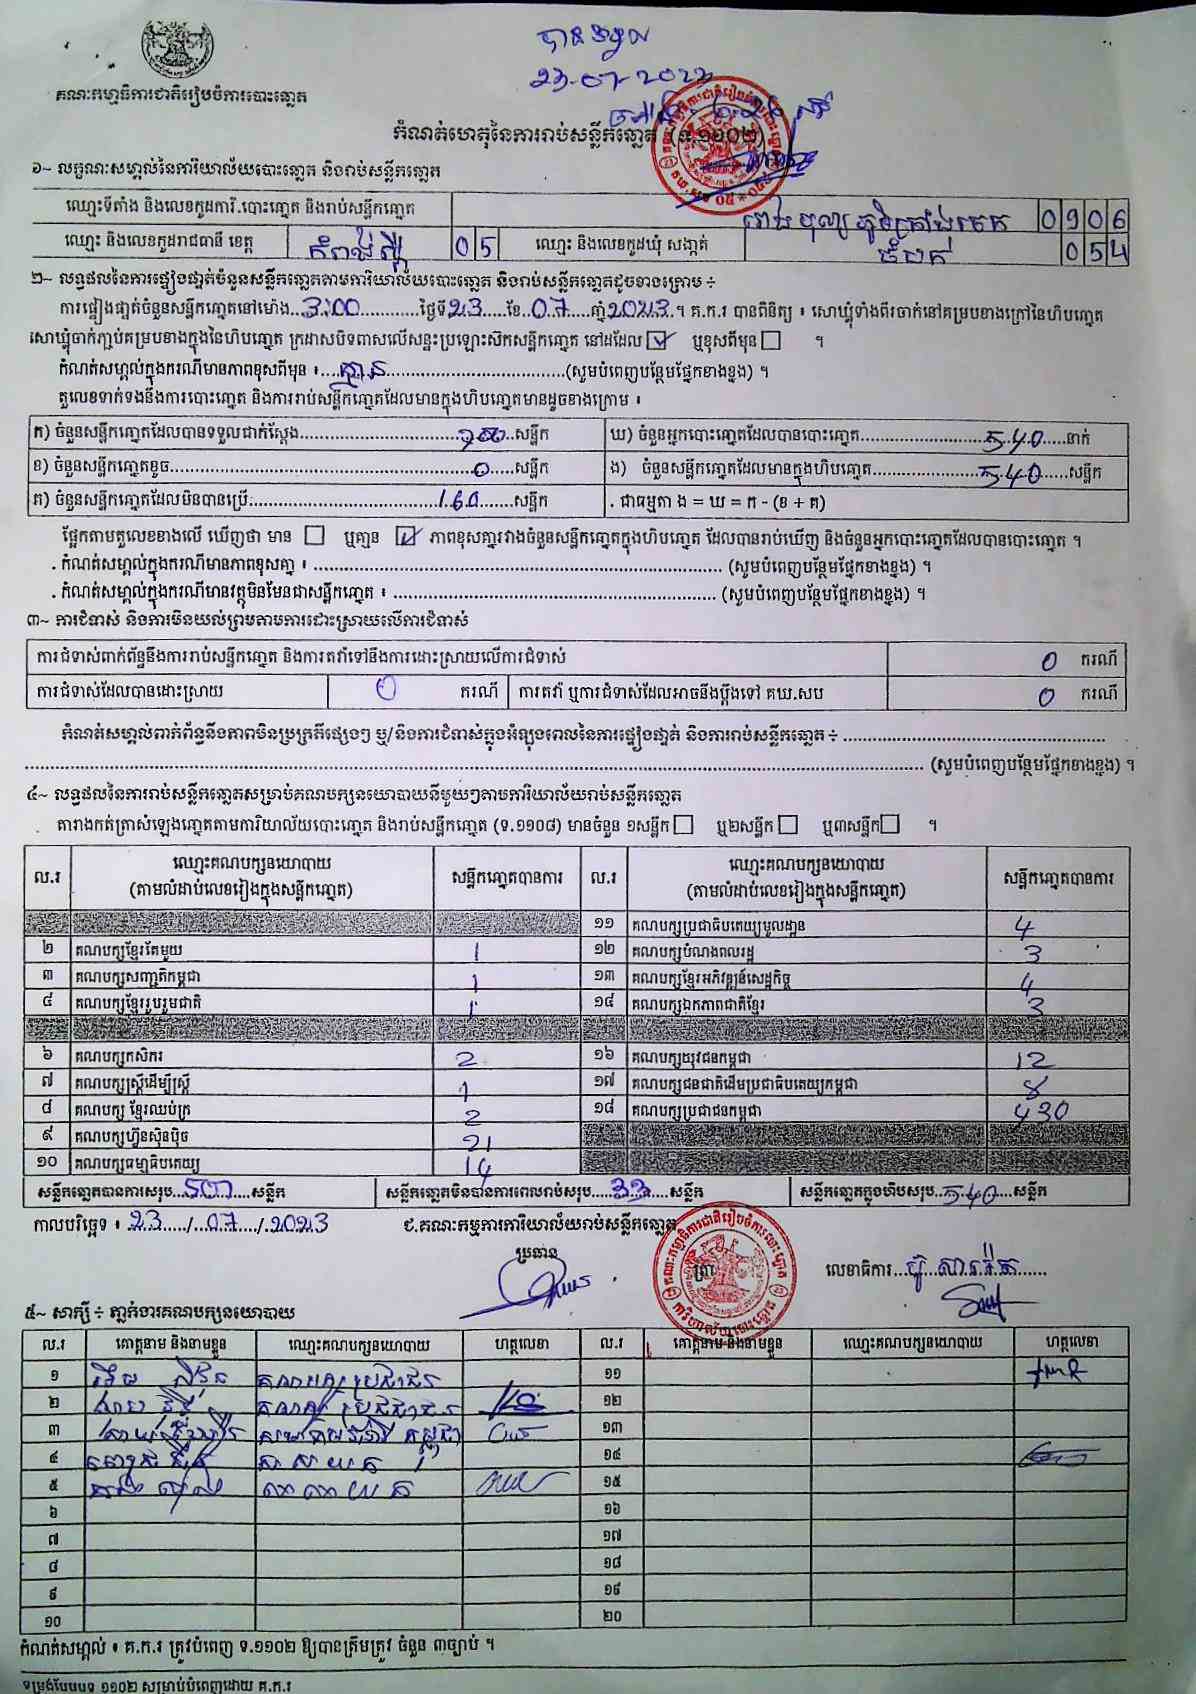 បានទទួល
23-07-2023
គណៈកម្មាធិការជាតិរៀបចំការបោះឆ្នោត
កំណត់ហេតុនៃការរាប់សន្លឹកឆ្នោត (ទ.១១០២)
១~ លក្ខណៈសម្គាល់នៃការិយាល័យបោះឆ្នោត និងរាប់សន្លឹកឆ្នោត
ឈ្មោះទីតាំង និងលេខកូដការិ.បោះឆ្នោត និងរាប់សន្លឹកឆ្នោត 0906
ឈ្មោះ និងលេខកូដរាជធានី ខេត្ត កំពង់ស្ពឺ 05 ឈ្មោះ និងលេខកូដឃុំ សង្កាត់ 054
២~ លទ្ធផលនៃការផ្ទៀងផ្ទាត់ចំនួនសន្លឹកឆ្នោតតាមការិយាល័យបោះឆ្នោត និងរាប់សន្លឹកឆ្នោតដូចខាងក្រោម ÷
ការផ្ទៀងផ្ទាត់ចំនួនសន្លឹកឆ្នោតនៅម៉ោង...3:00...ថ្ងៃទី23...ខែ.07...ឆ្នាំ2023.។ គ.ក.រ បានពិនិត្យ ៖ សោឃ្លុំទាំងពីរចាក់នៅគម្របខាងក្រៅនៃហិបឆ្នោត
សោឃ្លុំចាក់ភ្ជាប់គម្របខាងក្នុងនៃហិបឆ្នោត ក្រដាសបិទពាសលើសន្ទះប្រឡោះស៊កសន្លឹកឆ្នោត នៅដដែល ☑ ឬខុសពីមុន ☐ ។
កំណត់សម្គាល់ក្នុងករណីមានភាពខុសពីមុន ៖....គ្មាន....(សូមបំពេញបន្ថែមផ្នែកខាងខ្នង) ។
តួលេខទាក់ទងនឹងការបោះឆ្នោត និងការរាប់សន្លឹកឆ្នោតដែលមានក្នុងហិបឆ្នោតមានដូចខាងក្រោម ៖
ក) ចំនួនសន្លឹកឆ្នោតដែលបានទទួលជាក់ស្តែង....700...សន្លឹក ឃ) ចំនួនអ្នកបោះឆ្នោតដែលបានបោះឆ្នោត....540....នាក់
ខ) ចំនួនសន្លឹកឆ្នោតខូច....0....សន្លឹក ង) ចំនួនសន្លឹកឆ្នោតដែលមានក្នុងហិបឆ្នោត....540....សន្លឹក
គ) ចំនួនសន្លឹកឆ្នោតដែលមិនបានប្រើ....160....សន្លឹក . ជាធម្មតា ង = ឃ = ក - (ខ + គ)
ផ្អែកតាមតួលេខខាងលើ ឃើញថា មាន ☐ ឬគ្មាន ☑ ភាពខុសគ្នារវាងចំនួនសន្លឹកឆ្នោតក្នុងហិបឆ្នោត ដែលបានរាប់ឃើញ និងចំនួនអ្នកបោះឆ្នោតដែលបានបោះឆ្នោត ។
. កំណត់សម្គាល់ក្នុងករណីមានភាពខុសគ្នា ៖ .... (សូមបំពេញបន្ថែមផ្នែកខាងខ្នង) ។
. កំណត់សម្គាល់ក្នុងករណីមានវត្ថុមិនមែនជាសន្លឹកឆ្នោត ៖ .... (សូមបំពេញបន្ថែមផ្នែកខាងខ្នង) ។
៣~ ការជំទាស់ និងការមិនយល់ព្រមតាមការដោះស្រាយលើការជំទាស់
ការជំទាស់ពាក់ព័ន្ធនឹងការរាប់សន្លឹកឆ្នោត និងការតវ៉ាទៅនឹងការដោះស្រាយលើការជំទាស់ 0 ករណី
ការជំទាស់ដែលបានដោះស្រាយ 0 ករណី ការតវ៉ា ឬការជំទាស់ដែលអាចនឹងប្តឹងទៅ គឃ.សប 0 ករណី
កំណត់សម្គាល់ពាក់ព័ន្ធនឹងភាពមិនប្រក្រតីផ្សេងៗ ឬ/និងការជំទាស់ក្នុងអំឡុងពេលនៃការផ្ទៀងផ្ទាត់ និងការរាប់សន្លឹកឆ្នោត ÷ ....
.... (សូមបំពេញបន្ថែមផ្នែកខាងខ្នង) ។
៤~ លទ្ធផលនៃការរាប់សន្លឹកឆ្នោតសម្រាប់គណបក្សនយោបាយនីមួយៗតាមការិយាល័យរាប់សន្លឹកឆ្នោត
តារាងកត់ត្រាសំឡេងឆ្នោតតាមការិយាល័យបោះឆ្នោត និងរាប់សន្លឹកឆ្នោត (ទ.១១០៨) មានចំនួន ១សន្លឹក ☐ ឬ២សន្លឹក ☐ ឬ៣សន្លឹក ☐ ។
ល.រ ឈ្មោះគណបក្សនយោបាយ (តាមលំដាប់លេខរៀងក្នុងសន្លឹកឆ្នោត) សន្លឹកឆ្នោតបានការ ល.រ ឈ្មោះគណបក្សនយោបាយ (តាមលំដាប់លេខរៀងក្នុងសន្លឹកឆ្នោត) សន្លឹកឆ្នោតបានការ
១១ គណបក្សប្រជាធិបតេយ្យមូលដ្ឋាន 4
២ គណបក្សខ្មែរតែមួយ 1 ១២ គណបក្សបំណងពលរដ្ឋ 3
៣ គណបក្សសញ្ជាតិកម្ពុជា 1 ១៣ គណបក្សខ្មែរអភិវឌ្ឍន៍សេដ្ឋកិច្ច 4
៤ គណបក្សខ្មែររួបរួមជាតិ 1 ១៤ គណបក្សឯកភាពជាតិខ្មែរ 3
៦ គណបក្សកសិករ 2 ១៦ គណបក្សយុវជនកម្ពុជា 12
៧ គណបក្សស្ត្រីដើម្បីស្ត្រី 1 ១៧ គណបក្សជនជាតិដើមប្រជាធិបតេយ្យកម្ពុជា 8
៨ គណបក្ស ខ្មែរឈប់ក្រ 2 ១៨ គណបក្សប្រជាជនកម្ពុជា 430
៩ គណបក្សហ្វ៊ុនស៊ិនប៉ិច 21
១០ គណបក្សធម្មាធិបតេយ្យ 14
សន្លឹកឆ្នោតបានការសរុប...507...សន្លឹក សន្លឹកឆ្នោតមិនបានការពេលរាប់សរុប....33...សន្លឹក សន្លឹកឆ្នោតក្នុងហិបសរុប..540...សន្លឹក
កាលបរិច្ឆេទ ៖ 23..../..07..../.2023 ជ.គណៈកម្មការការិយាល័យរាប់សន្លឹកឆ្នោត
ប្រធាន
លេខាធិការ
៥~ សាក្សី ÷ ភ្នាក់ងារគណបក្សនយោបាយ
ល.រ គោត្តនាម និងនាមខ្លួន ឈ្មោះគណបក្សនយោបាយ ហត្ថលេខា ល.រ គោត្តនាម និងនាមខ្លួន ឈ្មោះគណបក្សនយោបាយ ហត្ថលេខា
១ គណបក្សប្រជាជន ១១
២ គណបក្ស ប្រជាជន ១២
៣ ១៣
៤ ១៤
៥ ១៥
៦ ១៦
៧ ១៧
៨ ១៨
៩ ១៩
១០ ២០
កំណត់សម្គាល់ ៖ គ.ក.រ ត្រូវបំពេញ ទ.១១០២ ឱ្យបានត្រឹមត្រូវ ចំនួន ៣ច្បាប់ ។
ទម្រង់បែបបទ ១១០២ សម្រាប់បំពេញដោយ គ.ក.រ